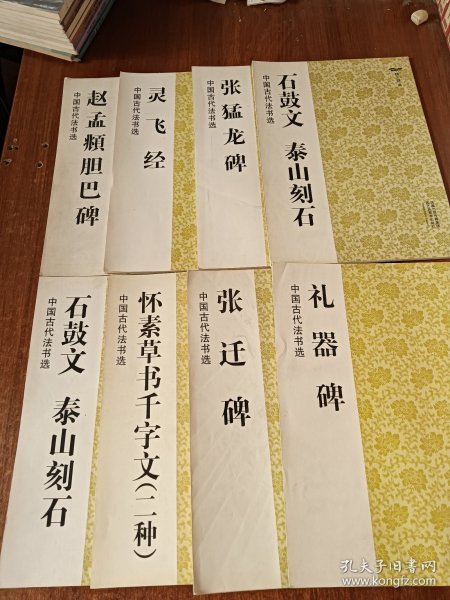 赵孟頫胆巴碑
中国古代法书选
灵飞经
中国古代法书选
张猛龙碑
中国古代法书选
石鼓文 泰山刻石
中国古代法书选
石鼓文 泰山刻石
中国古代法书选
怀素草书千字文(二种)
中国古代法书选
张迁碑
中国古代法书选
礼器碑
中国古代法书选
孔夫子旧书网
www.kongfz.com